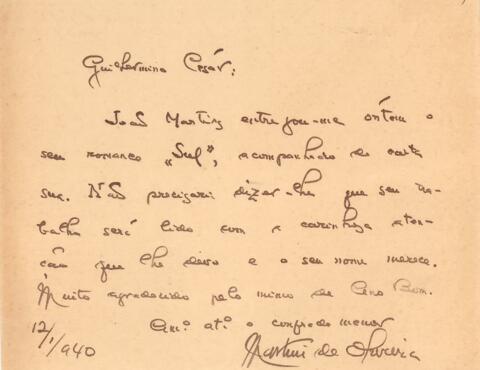 Guilhermino César:
João Martins entregou-me ôntem o
seu romance "Sul", acompanhado de carta
sua. Não precisaria dizer-lhe que seu tra-
balho será lido com a carinhosa aten-
ção que lhe devo e o seu nome merece.
Muito agradecido pelo mimo de Ano Bom.
Amº. atº. o confrade menor
Martins de Oliveira
12/1/940